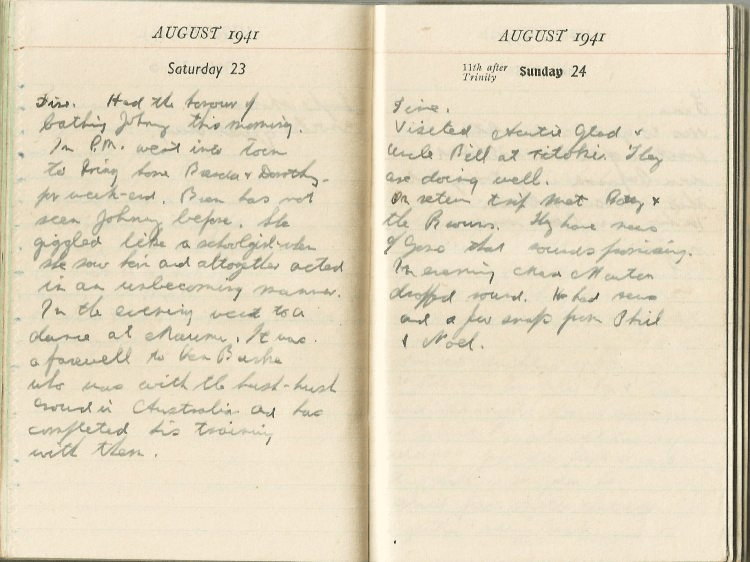 AUGUST 1941
Saturday 23
Fine. Had the honour of
bathing Johnny this morning.
In P.M. went into town
to bring home Brenda & Dorothy
for week-end. Bren has not
seen Johnny before. She
giggled like a schoolgirl when
she saw him and altogether acted
in an unbecoming manner.
In the evening went to a
dance at . It was
a farewell to Ken
who was with the hush-hush
crowd in Australia and has
completed his training
with them.
AUGUST 1941
11th after Trinity Sunday 24
Fine.
Visited Auntie Glad &
Uncle Bill at . They
are doing well.
On return trip met &
the . They have news
of that sounds promising.
In evening
dropped round. He had news
and a few snaps from Phil
& Noel.